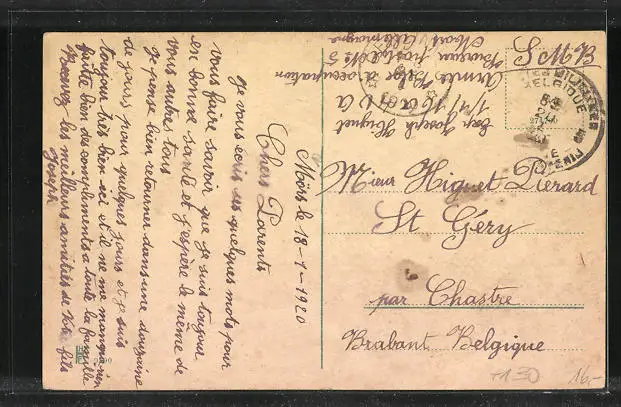 Mörs le 18-1-1920
Chers Parents
Je vous ecris ces quelques mots pour
vous faire savoir que je suis toujours
en bonne santé et j'espère le meme de
vous autres tous
je pense bien retourner dans une douzaine
de jours pour quelques jours et je suis
toujour très bien ici et il ne me manque rien
faites bien des compliments a toute la famille
Recevez les meilleurs amitiés de votre fils
Joseph
S M B
Cap Joseph Huguet
Armée Belge d'occupation
Bureau postale No 5
Allemagne
BELGIQUE
Mr Huguet Pierard
St Géry
par Chastre
Brabant Belgique
130
16,-